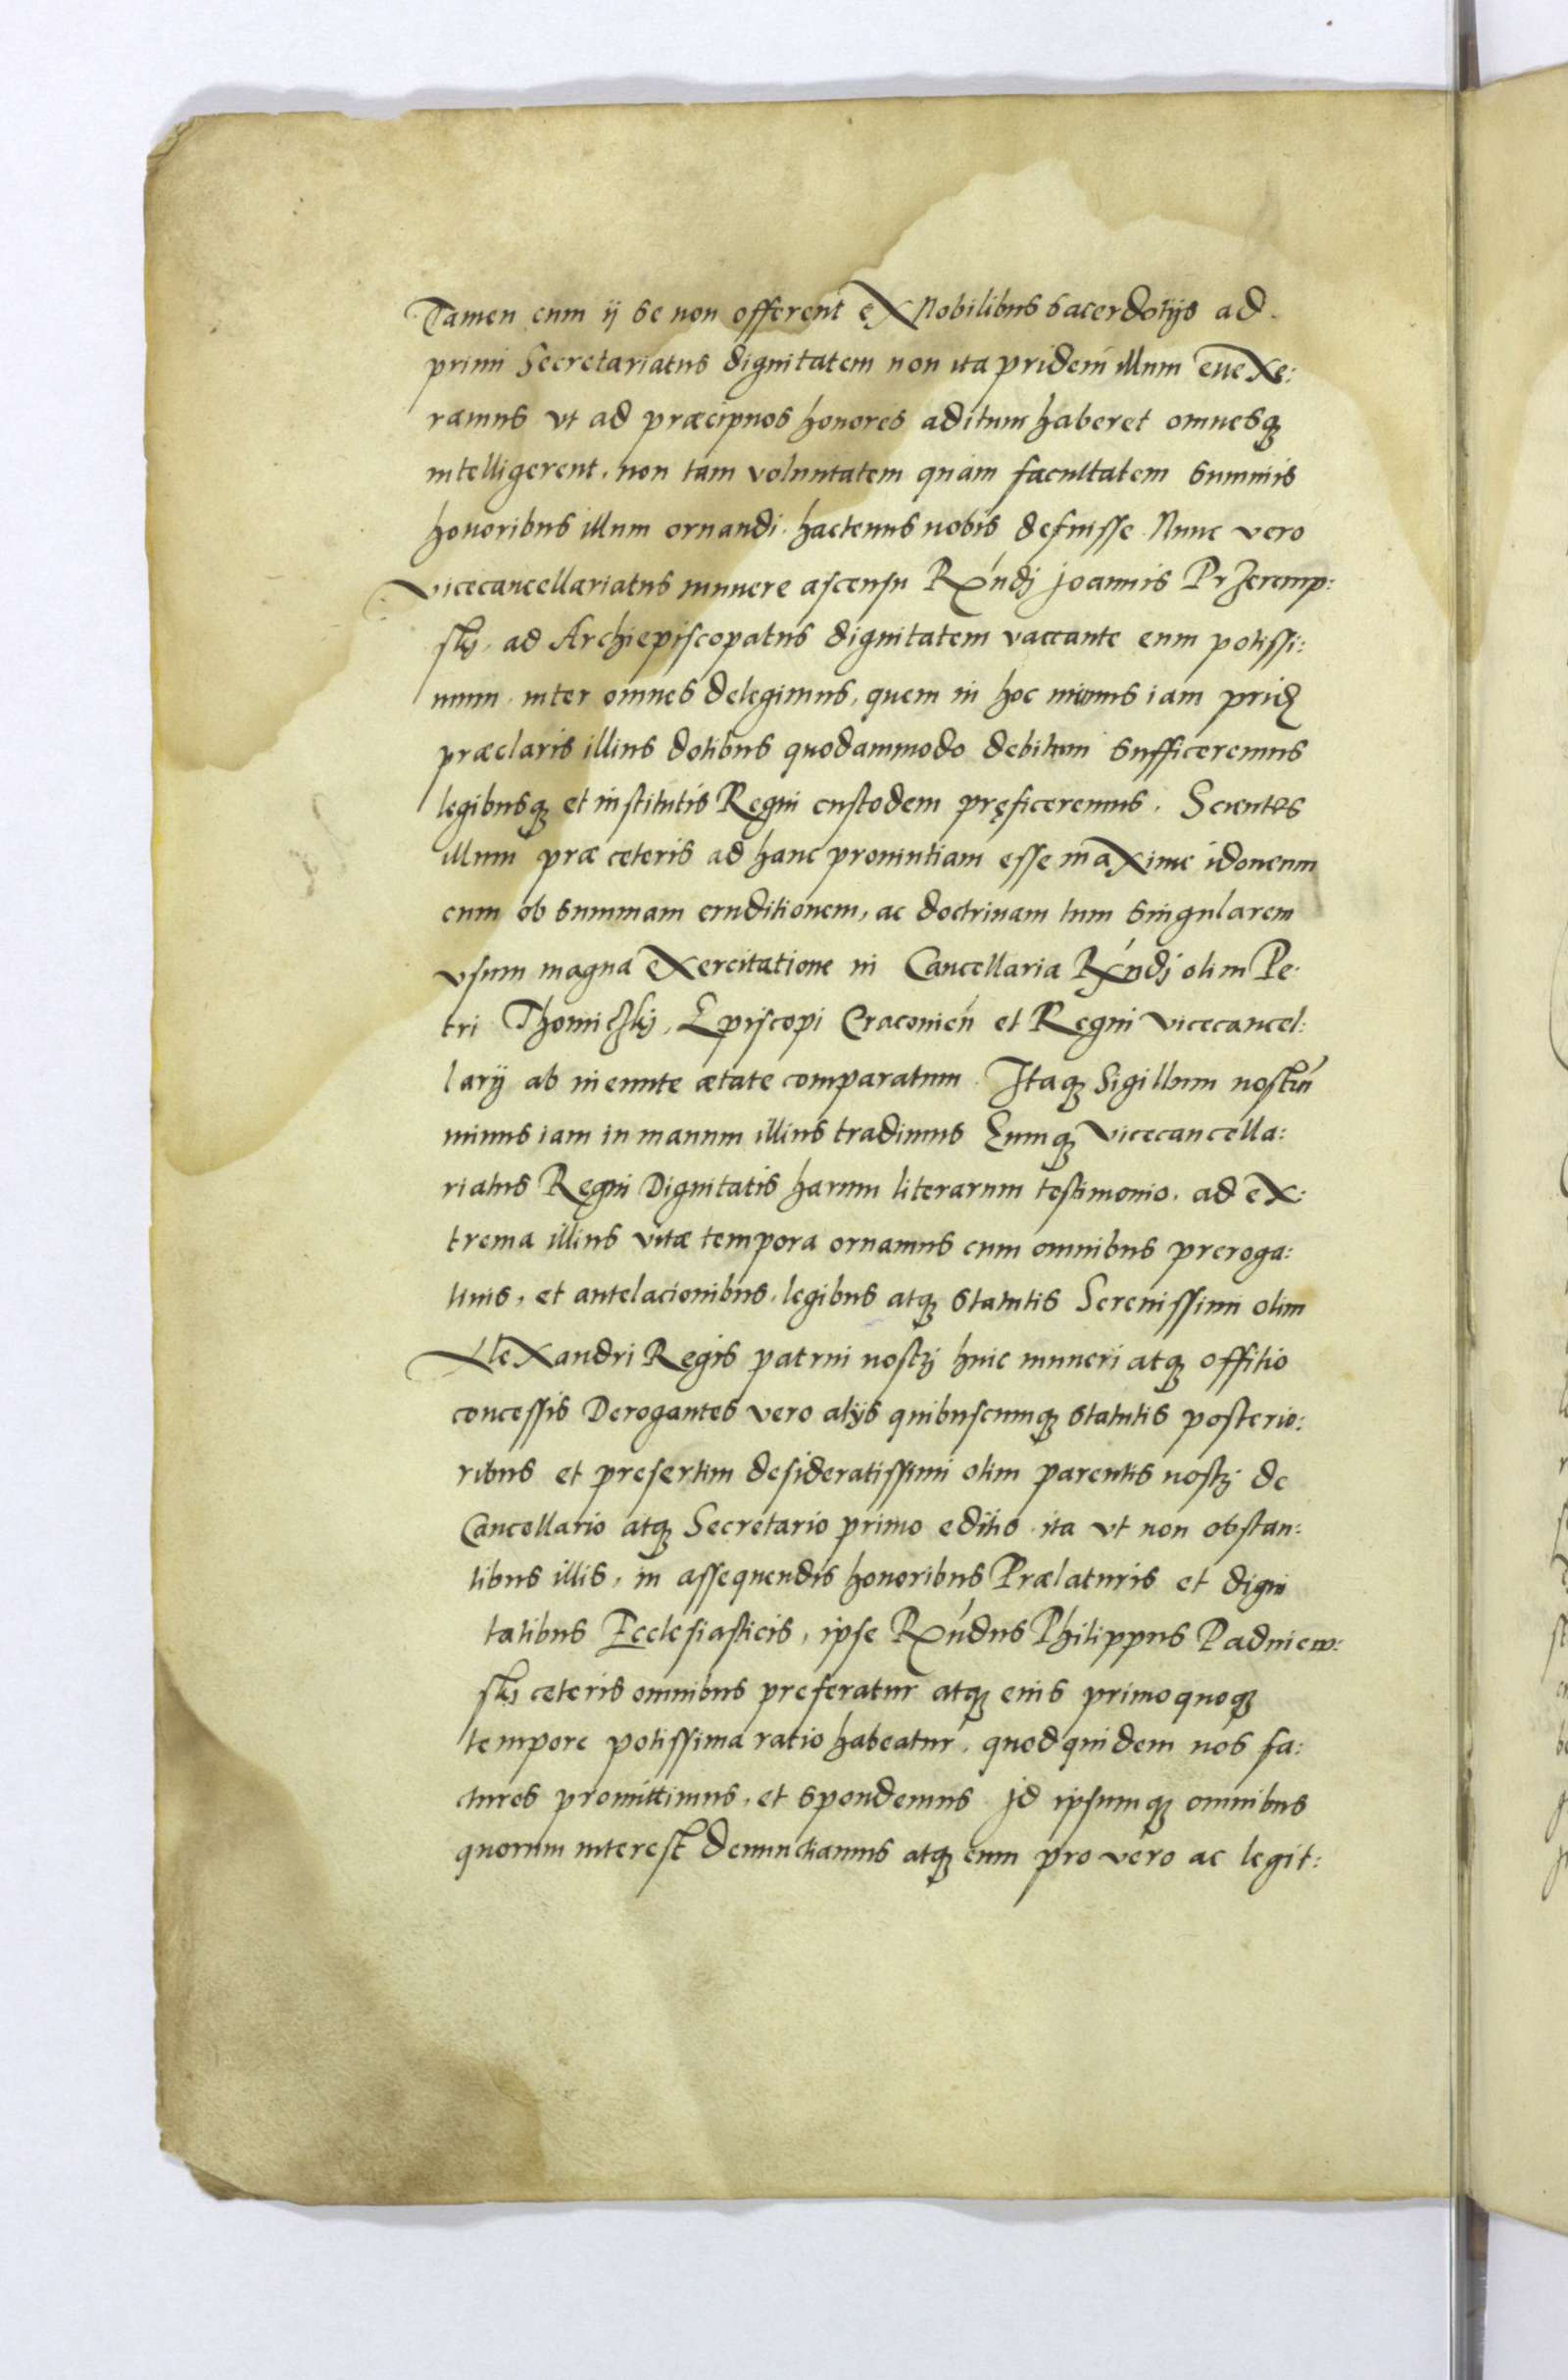 Tamen cum ij se non offerent ex Nobilibus sacerdotijs ad
primi Secretariatus dignitatem non ita pridem illum euexe:
ramus vt ad præcipuos honores aditum haberet omnesq́
intelligerent, non tam voluntatem quàm facultatem summis
honoribus illum ornandi hactenus nobis defuisse. Nunc vero
vicecancellariatus munere ascensu Rx́ndj joannis Przeremp:
skj, ad Archiepiscopatus dignitatem vaccante eum potissi:
mum inter omnes delegimus, quem in hoc munus iam prid
præclaris illius dotibus quodammodo debitum sufficeremus
legibusq́ et institutis Regni custodem pręficeremus. Scientes
illum præ ceteris ad hanc prouintiam esse maxime idoneum
cum ob summam eruditionem, ac doctrinam tum singularem
vsum magna exercitatione in Cancellaria Rx́ndj olim Pe:
tri Thomiczkj, Episcopi Cracouień et Regni vicecancel:
larij ab ineunte ætate comparatum. Itaq́ Sigillum nostrú
minus iam in manum illius tradimus Eumq́ vicecancella:
riatus Regni Dignitatis harum literarum testimonio, ad ex:
trema illius vitæ tempora ornamus cum omnibus preroga:
tiuis, et antelacionibus, legibus atq́ statutis Serenissimi olim
Alexandri Regis patrui nostrj huic muneri atq́ offitio
concessis Derogantes vero alijs quibuscumq́ statutis posterio:
ribus et presertim desideratissimi olim parentis nostrj de
Cancellario atq́ Secretario primo editis ita vt non obstan:
tibus illis, in assequendis honoribus Prælaturis et digni
tatibus Ecclesiasticis, ipse Rx́ndus Philippus Padniew:
skj ceteris omnibus preferatur atq́ eius primo quoq́
tempore potissima ratio habeatur, quod quidem nos fa:
cturos promittimus, et spondemus jd ipsumq́ omnibus
quorum interest denunctiamus atq́ eum pro vero ac legit: